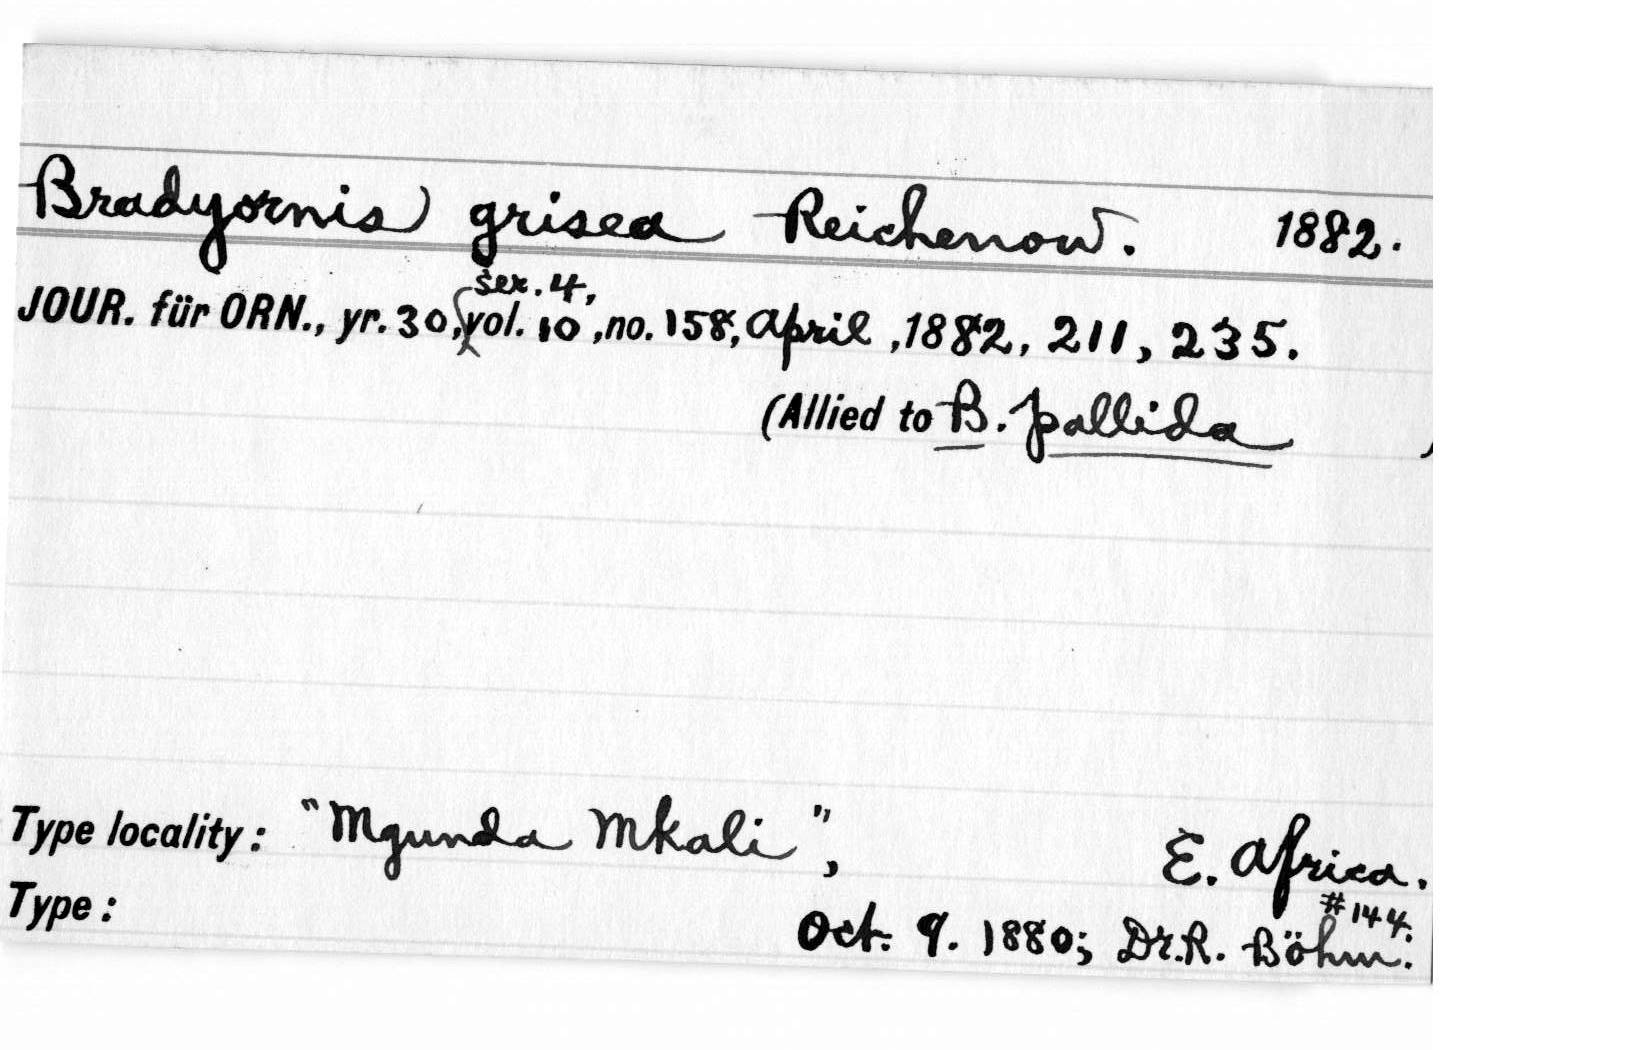 Bradyornis grisea Reichenow. 1882.
ser. 4,
JOUR. für ORN., yr. 30, vol. 10, no. 158, April, 1882, 211, 235.
(Allied to B. pallida )
Type locality: "Mgunda Mkali", E. Africa.
#144.
Type: Oct. 9. 1880; Dr. R. Böhm.